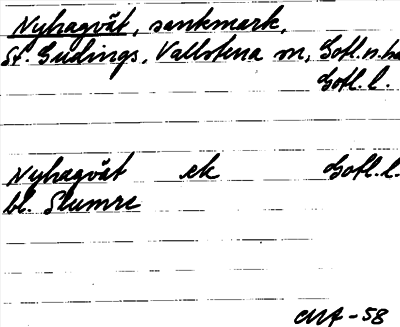 Nyhagvät, sankmark,
St. Gudings, Vallstena sn, Gotl. n. hä
Gotl. l.
Nyhagvät ek Gotl. l.
bl. Slumre
MA-58